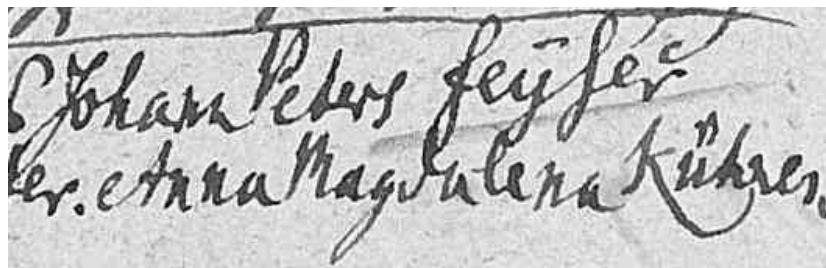 Johann Peters Feyser
er. Anna Magdalena Kühner